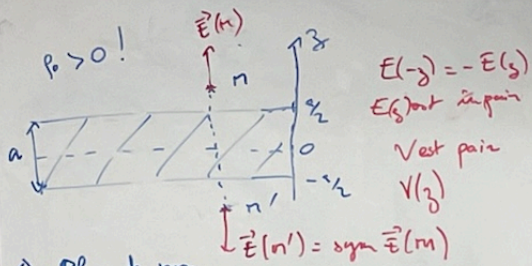 ρ₀ > 0 !
E⃗(M)
M
z
a/2
a
0
-a/2
M'
E⃗(M') = sym E⃗(M)
E(-z) = - E(z)
E(z) est impair
V est pair
V(z)